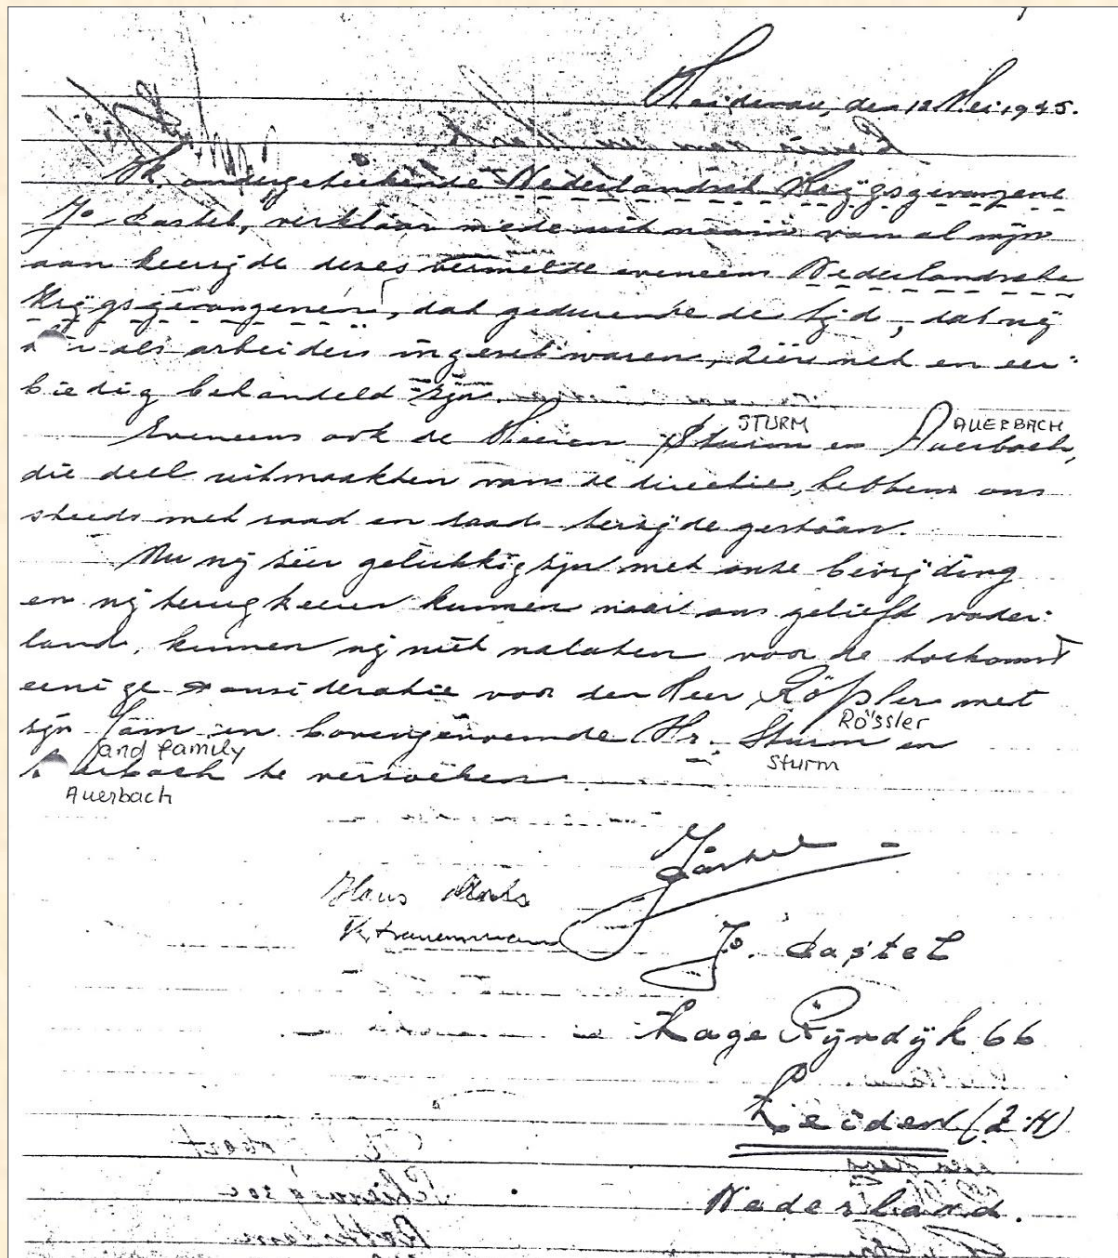 Heidenau, den 12 Mei 1945.
Ik ondergeteekende Nederlandsch Krijgsgevangene
Jo. Castel, verklaar mede uit naam van al mijn
aan keerzijde dezes vermelde eveneens Nederlandsche
Krijgsgevangenen, dat gedurende de tijd, dat wij
als arbeiders ingezet waren, zéér net en eer-
biedig behandeld zijn.
Eveneens ook de Heeren Sturm en Auerbach,
STURM AUERBACH
die deel uitmaakten van de directie, hebben ons
steeds met raad en daad terzijde gestaan.
Nu wij zéér gelukkig zijn met onze bevrijding
en wij terugkeeren kunnen naar ons geliefd vader-
land, kunnen wij niet nalaten voor de toekomst
eenige consideratie voor den Heer Rößler met
Rössler
zijn fam en bovengenoemde Hr. Sturm en
and family Sturm
Auerbach te verzoeken
Auerbach
JCastel
Hans
Vertrauensmann
Jo. Castel
Lage Rijndijk 66
Leiden (Z-H)
Nederland.